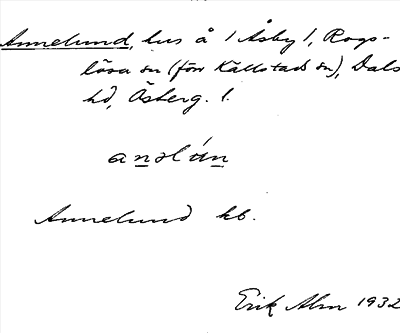 Annelund, hus å 1 Åsby 1, Rogs-
lösa sn (förr Källstads sn), Dals
hd, Österg. l.
anəlún
Annelund kb.
Erik Alm 1932